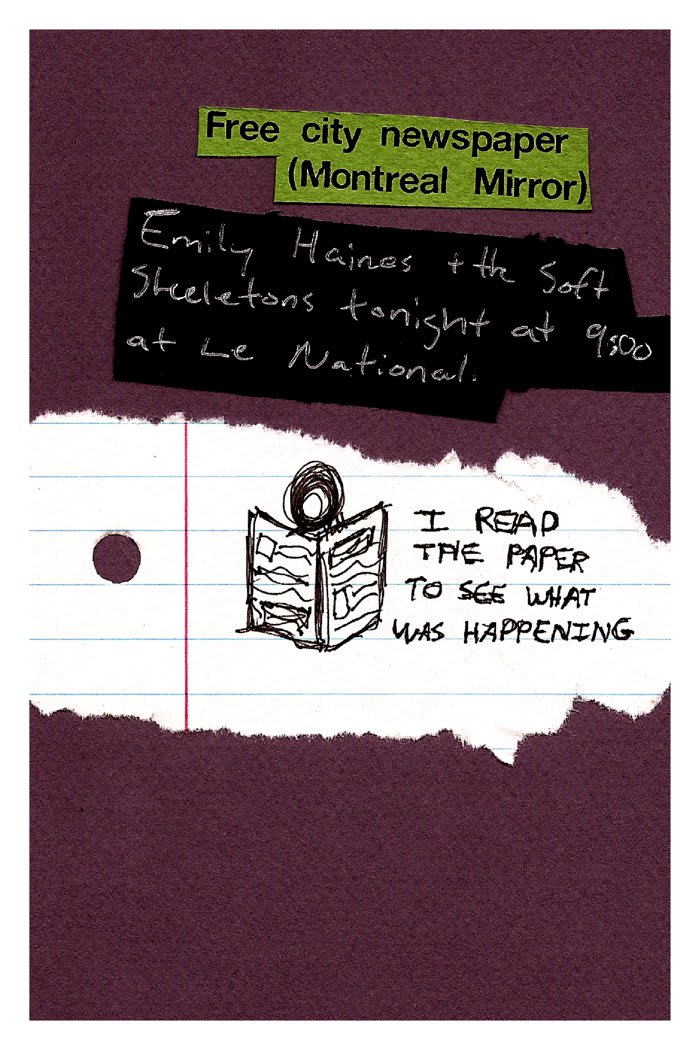 Free city newspaper
(Montreal Mirror)
Emily Haines + the Soft
Skeletons tonight at 9:00
at Le National.
I READ
THE PAPER
TO SEE WHAT
WAS HAPPENING